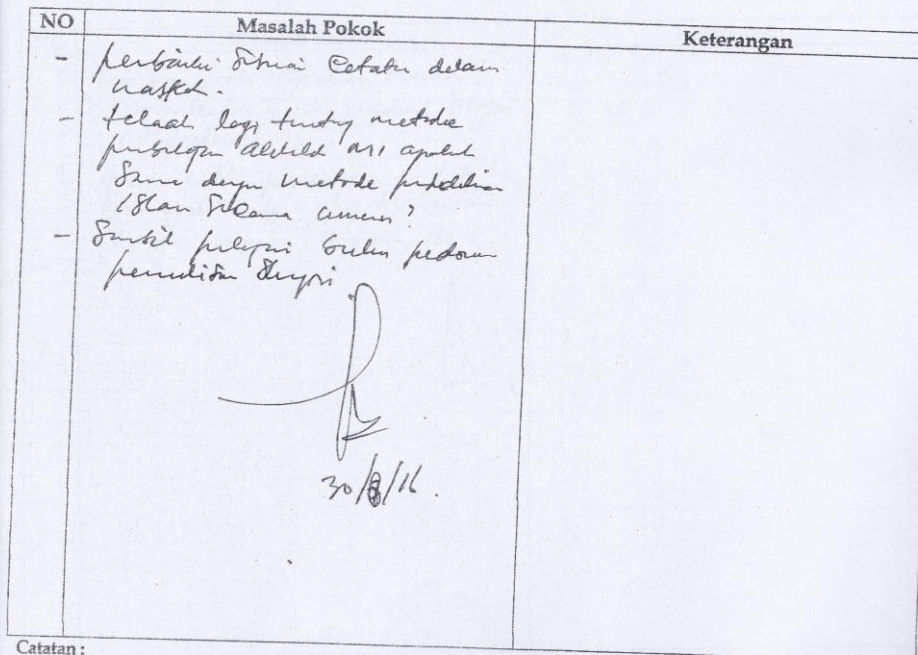 NO Masalah Pokok Keterangan
- perbaiki sesuai Catatan dalam
naskah.
- telaah lagi tentang metode
akhlak apakah
sama dengan metode pendidikan
Islam secara umum?
- Sambil pelajari buku pedoman
penulisan Skripsi
30/8/16.
Catatan :